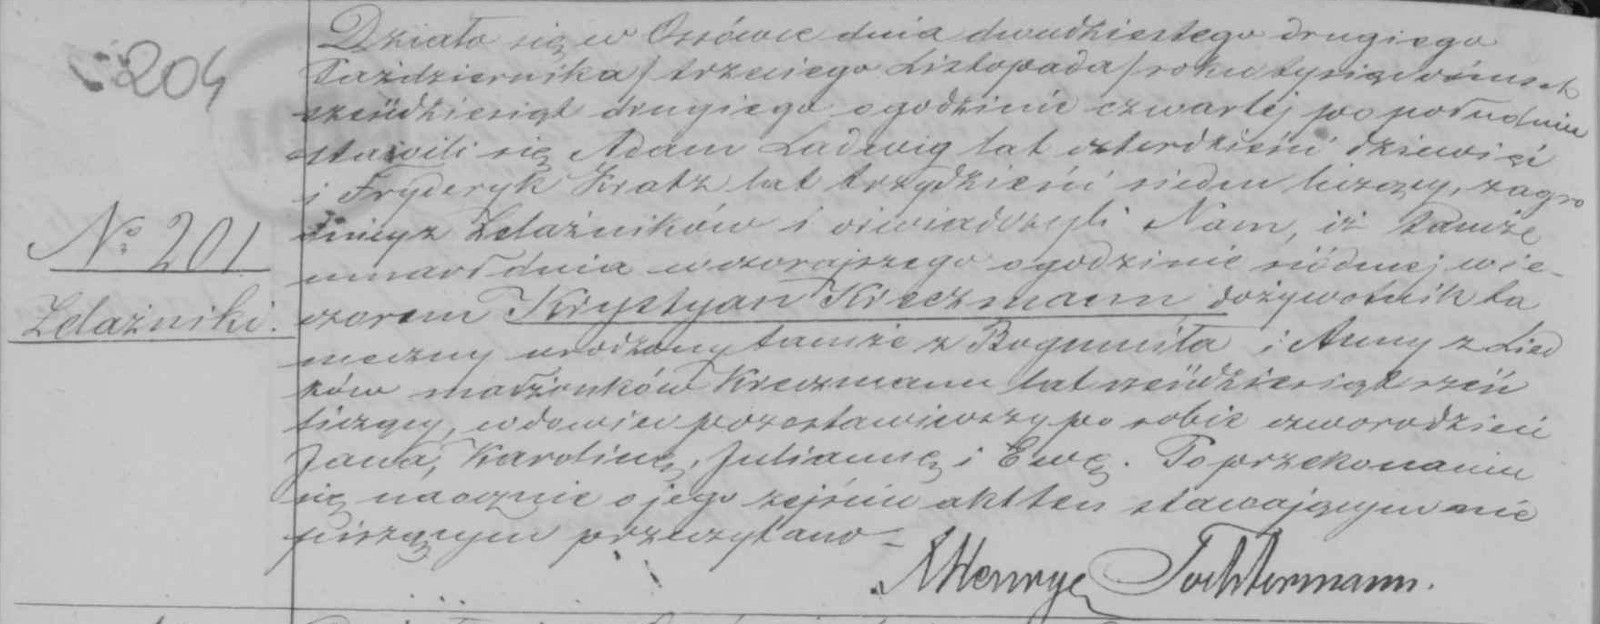 204
Nº 201
Żelaźniki.
Działo się w Ossówce dnia dwudziestego drugiego
Października / trzeciego Listopada / roku tysiąc ośmset
sześdziesiąt drugiego o godzinie czwartéj po południu
stawili się Adam Ladwig lat czterdzieści dziewięć
i Fryderyk Kratz lat trzydzieści siedm liczący, zagro
dnicy z Żelaźników i oświadczyli Nam, iż tamże
umarł dnia wczorajszego o godzinie siódmej wie-
czorem Krystyan Kreczmann dożywotnik ta
meczny urodzony tamże z Bogumiła i Anny z Lied
ków małżonków Kreczmann lat sześdziesiąt sześć
liczący, wdowiec pozostawiwszy po sobie czworo dzieci
Jana, Karolinę, Juliannę i Ewę. Po przekonaniu
się naocznie o jego zejściu akt ten stawającym nie
piszącym przeczytano –
Henryk Tochtermann.